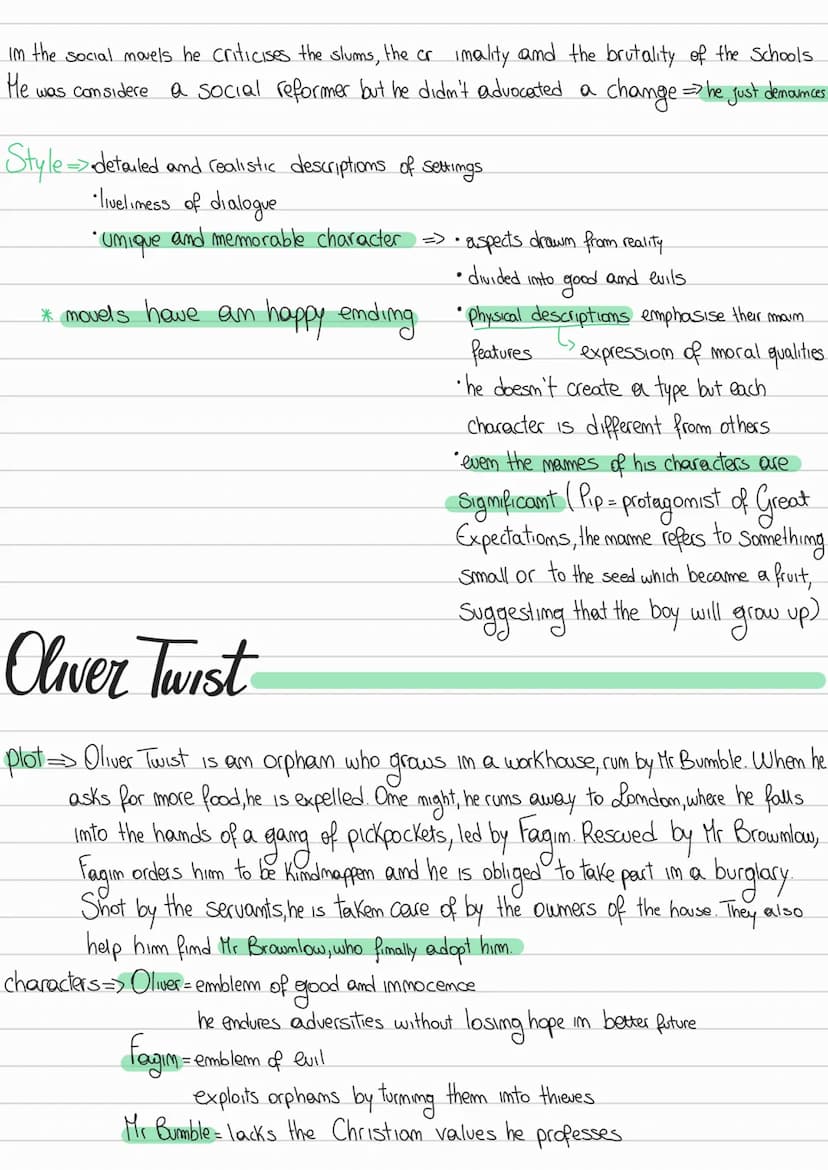 In the social novels he criticises the slums, the cr imality and the brutality of the schools
He was considere a social reformer but he didn't advocated a change => he just denounces
Style => • detailed and realistic descriptions of settings
• liveliness of dialogue
• unique and memorable character => • aspects drawn from reality
• divided into good and evils
* novels have an happy ending
• physical descriptions emphasise their main
features ↳ expression of moral qualities
• he doesn't create a type but each
character is different from others
• even the names of his characters are
significant (Pip = protagonist of Great
Expectations, the name refers to something
small or to the seed which became a fruit,
suggesting that the boy will grow up)
Oliver Twist
plot => Oliver Twist is an orphan who grows in a workhouse, run by Mr Bumble. When he
asks for more food, he is expelled. One night, he runs away to London, where he falls
into the hands of a gang of pickpockets, led by Fagin. Rescued by Mr Brownlow,
Fagin orders him to be kindnappen and he is obliged to take part in a burglary.
Shot by the servants, he is taken care of by the owners of the house. They also
help him find Mr Brownlow, who finally adopt him.
characters => Oliver = emblem of good and innocence
he endures adversities without losing hope in better future
Fagin = emblem of evil
exploits orphans by turning them into thieves
Mr Bumble = lacks the Christian values he professes